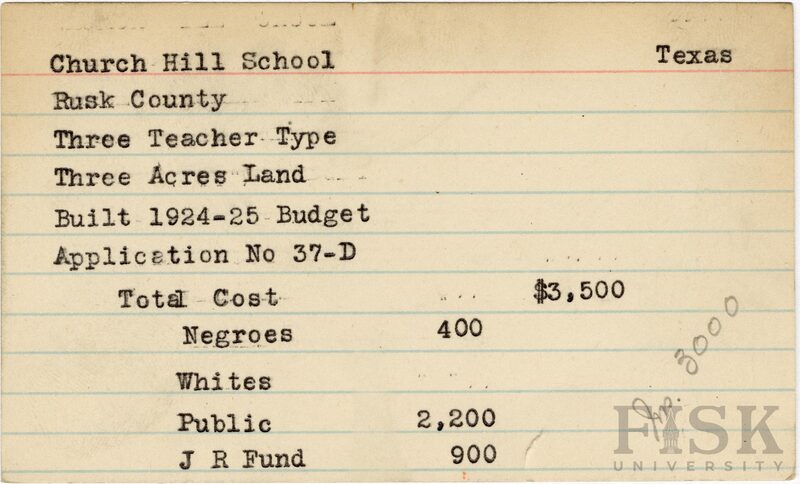 Church Hill School Texas
Rusk County
Three Teacher Type
Three Acres Land
Built 1924-25 Budget
Application No 37-D
Total Cost $3,500
Negroes 400
Whites
Public 2,200
J R Fund 900
3000
FISK
UNIVERSITY